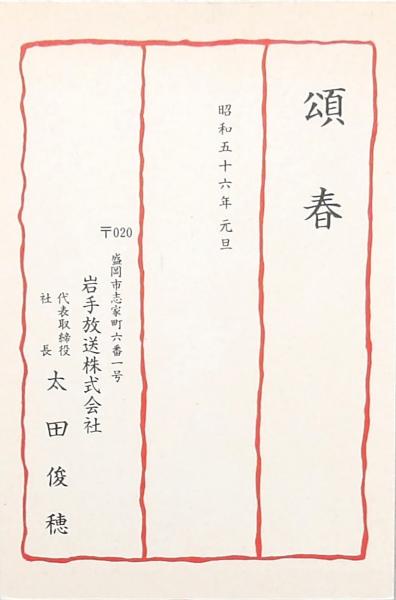 頌春
昭和五十六年元旦
〒020
盛岡市志家町六番一号
岩手放送株式会社
代表取締役
社長
太田俊穂